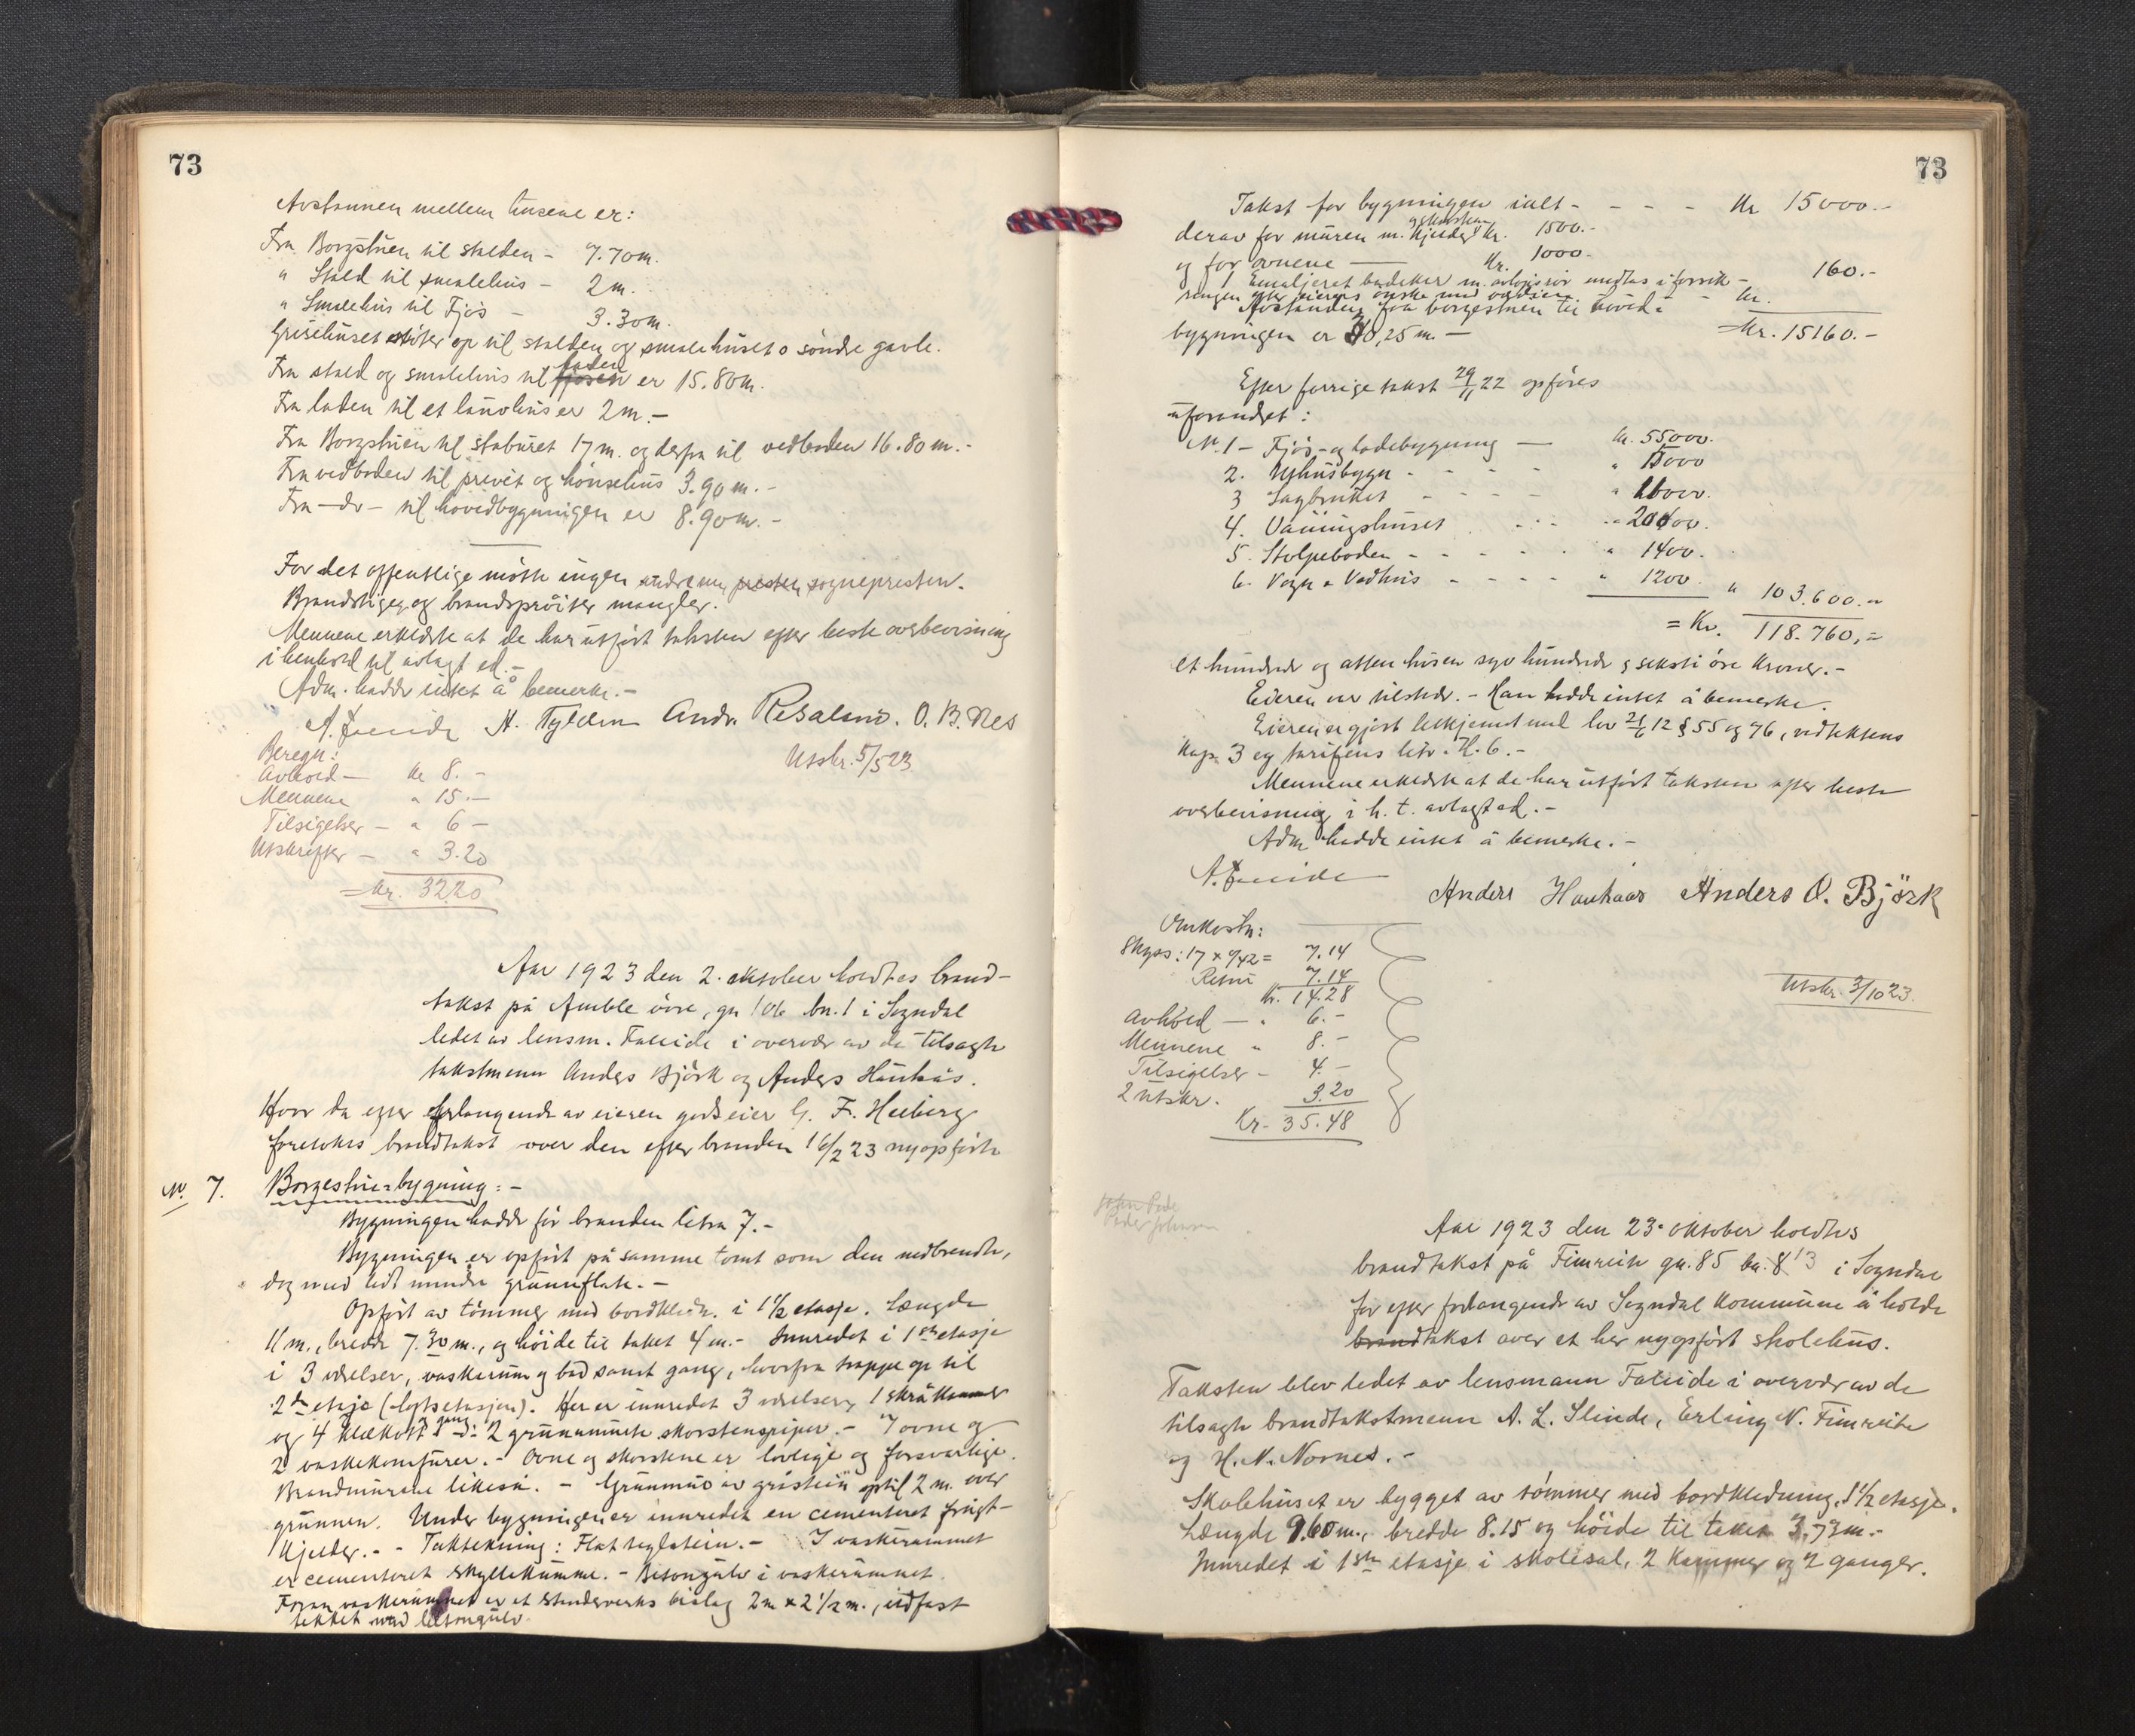 73
Avstannen mellem husene er:
Fra Borgstuen til stalden - 7.70m.
" Stald til smalehus - 2m.
" Smalehus til Fjøs - 3.30m.
Grisehuset støter op til stalden og smalehusets søndre gavle.
Fra stald og smalehus til fjøsen laden er 15.80m.
Fra laden til et løuvhus er 2m.-
Fra Borgstuen til staburet 17m. og derfra til vedboden 16.80m.-
Fra vedboden til privet og hønsehus 3.90m.-
Fra -do- til hovedbygningen er 8.90m.-
For det offentlige møtte ingen andre enn presten sogneprester.
Brandstiger og brandsprøiter mangler.
Mennene erklærte at de har utført taksten efter beste overbevisning
i henhold til avlagt ed.-
Adm. hadde intet å bemerke.-
A. Faleide N. Tylden Andr. Risaland. O. B. Nes
Utskr. 5/5 23.
Beregn:
Avhold - kr 8.-
Mennene " 15.-
Tilsigelser - " 6-
Utskrifter - " 3.20
= kr. 3220
Aar 1923 den 2. oktober holdtes brand-
takst på Amble øvre, gn 106 bn. 1 i Sogndal
ledet av lensm. Faleide i overvær av de tilsagte
takstmenn Anders Björk og Anders Haukås.
Hvor da efter forlangende av eieren godseier G. F. Heiberg
foretokes brandtakst over den efter branden 16/2 23 nyopførte
No. 7. Borgestue=bygning:-
Bygningen hadde før branden litra 7.-
Bygningen er opført på samme tomt som den nedbrendte,
dog med lidt mindre grunnflate.-
Opført av tømmer med bordkledn. i 1½ etasje. Længde
11m., bredde 7.30m., og høide til taket 4m.- Innredet i 1ste etasje
i 3 værelser, vaskerum og bad samt gang, hvorfra trappe op til
2den etasje (loftsetasjen). Her er innredet 3 værelser, 1 skråkammer
og 4 klækott og gang.- 2 grunnmurte skorstenspiper.- 7 ovne og
2 vaskekomfurer.- Ovne og skorstene er lovlige og forsvarlige.
Brandmurene likeså.- Grunnmur av gråstein optil 2 m. over
grunnen. Under bygningen er innredet en cementeret frugt-
kjelder.- - Taktekning: Flat teglstein.- I vaskerummet
er cementeret skyllekumme.- Betongulv i vaskerummet.
Foran vaskerummet er et stenderverks bislag 2m x 2½m., ildfast
tekket med betongulv
73
Takst for bygningen ialt - - - - Kr 15000.-
derav for muren m. kjelder og skorsten Kr. 1500.-
og for ovnene — Kr. 1000-
1 Emaljeret badekar m. avløpsrør medtas i forsik-
ringen efter eierens ønske med verdien - kr. 160.-
Avstanden fra borgestuen til hoved-
bygningen er 30,25m.- Kr. 15160.-
Efter forrige takst 29/11 22 opføres
uforandret:
No. 1 - Fjøs- og ladebygning — kr. 55000.
2. Nyhusbygn - - - - " 15000
3 Sagbruket - - - - " 11000.
4. Vaaningshuset . - . . " 20000.
5. Stolpeboden - - - - " 1400.
6. Vogn & Vedhus - - - - " 1200. " 103.600.-
= Kr. 118.760,=
Et hundrede og atten tusen syv hundrede & seksti øre Kroner.-
Eieren var tilstede.- Han hadde intet å bemerke.
Eieren er gjort bekjent med lov 21/6 12 § 55 og 76, vedtektens
Kap. 3 og tarifens litr. H. 6.-
Mennene erklærte at de har utført taksten efter beste
overbevisning i h. t. avlagt ed.-
Adm hadde intet å bemerke.-
A. Faleide
Anders Haukaas Anders O. Björk
Omkostn:
Skyss: 17 x 0/42= 7.14
Retur 7.14
Kr. 14.28
Avhold - . 6.-
Mennene " 8.-
Tilsigelser - 4.-
2 utskr. 3.20
Kr- 35.48
Utskr. 3/10 23.
John Peder
Peder Johnsen
Aar 1923 den 23. oktober holdtes
brandtakst på Fimreite gn. 85 bn. 8 13 i Sogndal
for efter forlangende av Sogndal Kommune å holde
brandtakst over et her nyopført skolehus.
Taksten blev ledet av lensmann Faleide i overvær av de
tilsagte brandtakstmenn A. L. Slinde, Erling N. Fimreite
og H. N. Nornes.-
Skolehuset er bygget av tømmer med bordkledning, 1½ etasje.
Længde 9.60m., bredde 8.15 og høide til taket 3.73m.-
Innredet i 1ste etasje i skolesal, 2 kammer og 2 ganger.